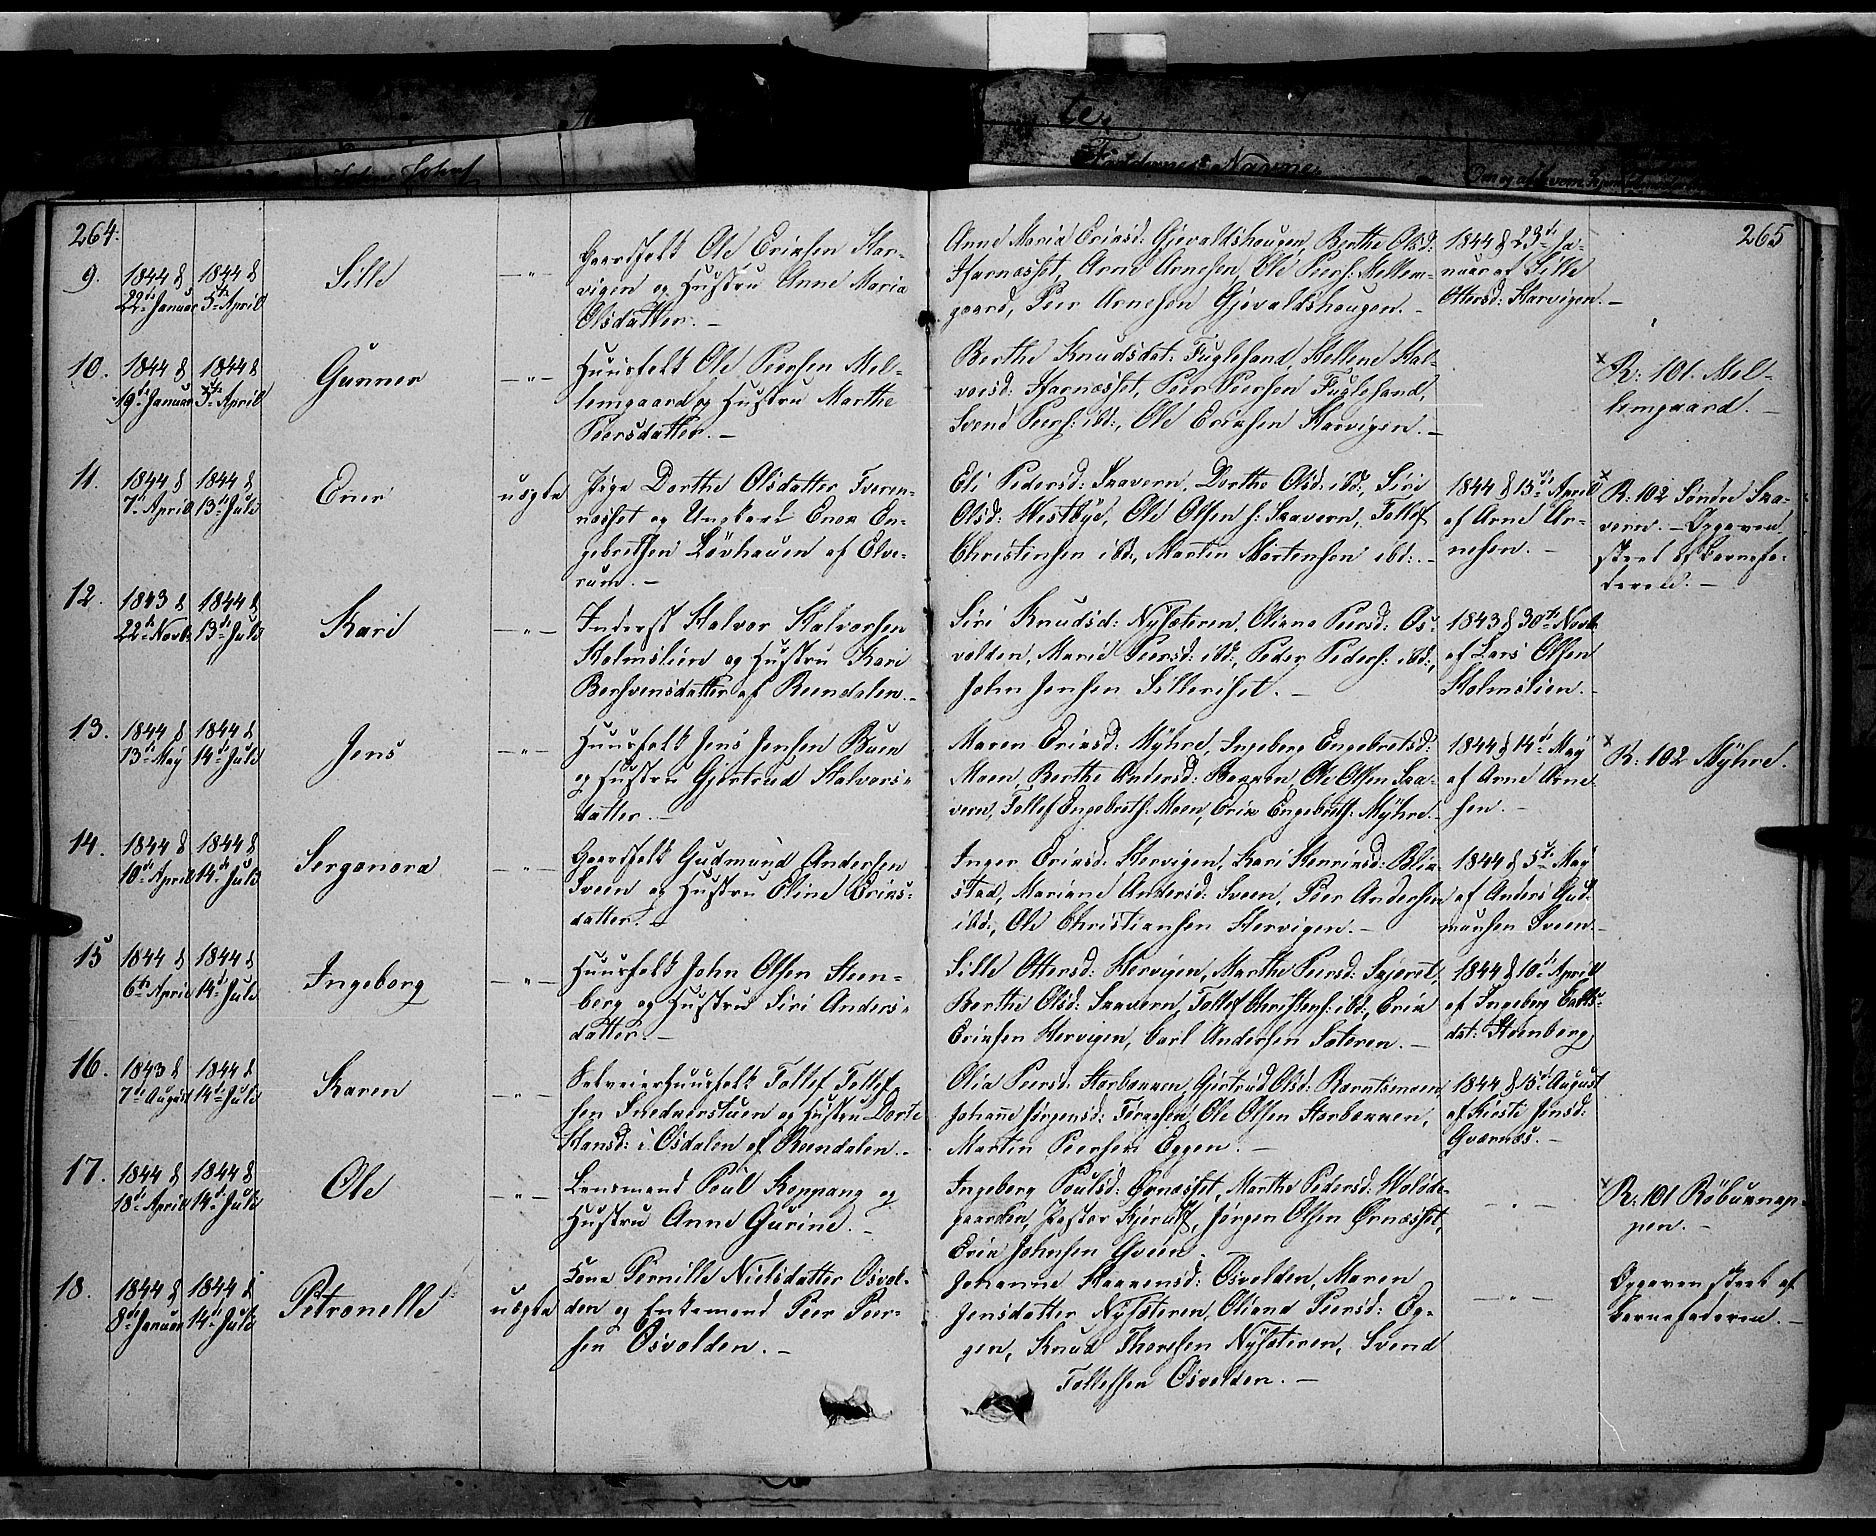 te,
Faddernes Navne,
264.
265
9.
1844 d
22de Januar
1844 d
5te April
Sille
—"—
Gaardfolk Ole Eriksen Har-
vigen og Hustru Anne Maria
Olsdatter. —
Anne Maria Eriksd: Gjevaldshaugen, Berthe Olsd:
Harnæsset, Arne Arnesen, Ole Peers: Mellem-
gaard, Peer Arnesen Gjevaldshaugen. —
1844 d 23de Ja-
nuar af Sille
Ottersd: Harvigen. —
10.
1844 d
19de Januar
1844 d
5te April
Gunner
—"—
Huusfolk Ole Peersen Mel-
lemgaard og Hustru Marthe
Peersdatter. —
Berthe Knudsdat: Fuglesand, Hellene Hal-
vorsd: Harnæsset, Peer Peersen Fuglesand,
Svend Peers: ibd:, Ole Eriksen Harvigen. —
x R: 101. Mel-
lemgaard. —
11.
1844 d
7de April
1844 d
13de Juli
Ener
uægte
Pige Dorthe Olsdatter Tveren-
næsset og Ungkarl Ener En-
gebretsen Løvhauen af Elve-
rum. —
Eli Pedersd: Saavern, Dorthe Olsd: ibd:, Siri
Olsd: Westbye, Ole Olsen S: Saavern, Tollef
Christensen ibd:, Martin Mortensen ibd: —
1844 d 15de April
af Arne Ar-
nesen. —
x R: 102 Søndre Saa-
vern. — Opgaven
skeet af Barnefa-
deren. —
12.
1843 d
22de Novbr
1844 d
13de Juli
Kari
—"—
Inderst Halvor Halvorsen
Holmslien og Hustru Kari
Berhvensdatter af Rendalen. —
Siri Knudsd: Nysæteren, Oliane Peersd: Os-
volden, Marie Peersd: ibd:, Peder Peders: ibd:,
John Jensen Sætteriset. —
1843 d 30te Novbr
af Lars Olsen
Holmslien. —
13.
1844 d
13de May
1844 d
14de Juli
Jens
—"—
Huusfolk Jens Jensen Buen
og Hustru Gjertrud Halvors-
datter. —
Maren Eriksd: Myhre, Ingeborg Engebretsd:
Moen, Berthe Andersd: Bakken, Ole Olsen Saa-
vern, Tollef Engebreths: Moen, Erik Engebreths: Myhre. —
1844 d 14de May
af Arne Arne-
sen. —
x R: 102 Myhre.
14.
1844 d
10de April
1844 d
14de Juli
Serganora
—"—
Gaardfolk Gudmund Andersen
Sveen og Hustru Oline Eriks-
datter. —
Inger Eriksd: Hervigen, Kari Henriksd: Blik-
stad, Mariane Andersd: Sveen, Peer Andersen
ibd:, Ole Christiansen Hervigen. —
1844 d 5te May
af Anders Gud-
mundsen Sveen. —
15
1844 d
6te April
1844 d
14de Juli
Ingeborg
—"—
Huusfolk John Olsen Steen-
berg og Hustru Siri Anders-
datter. —
Sille Ottersd: Hervigen, Marthe Peersd: Skjæret,
Berthe Olsd: Saavern, Tollef Christens: ibd:, Erik
Eriksen Hervigen, Carl Andersen Sæteren. —
1844 d 10de April
af Ingeborg
dat: Steenberg
16.
1843 d
7de August
1844 d
14de Juli
Karen
—"—
Selveierhuusfolk Tollef Tollef-
sen Snedkerstuen og Hustru Dorte
Hansd: i Osdalen af Rendalen. —
Olia Peersd: Storbakken, Gjertrud Olsd: Berntsmoen
Johanne Jørgensd: Ole Olsen Storbakken,
Martin Peersen Eggen. —
1844 d 15de August
af Kirsti Jensd:
Gvarnæs. —
17.
1844 d
18de April
1844 d
14de Juli
Ole
—"—
Lensmand Poul Koppang og
Hustru Anne Gurine. —
Ingeborg Poulsd: Ørnæsset, Marthe Pedersd: Widste-
gaarden, Pastor Kjerulf, Jørgen Olsen Ørnæsset,
Erik Johnsen Qveen. —
—"—
x R: 101 Røbuknap-
pen. —
18.
1844 d
8de Januar
1844 d
14de Juli
Petronelle
uægte
Kone Pernille Nielsdatter Osvol-
den og Enkemand Peer Peer-
sen Osvolden. —
Johanne Haagensd: Osvolden, Maren
Jensdatter Nysæteren, Oliana Peersd: Eg-
gen, Knud Thoresen Nysæteren, Svend
Tollefsen Osvolden. —
—"—
Opgaven skeet af
Barnefaderen. —